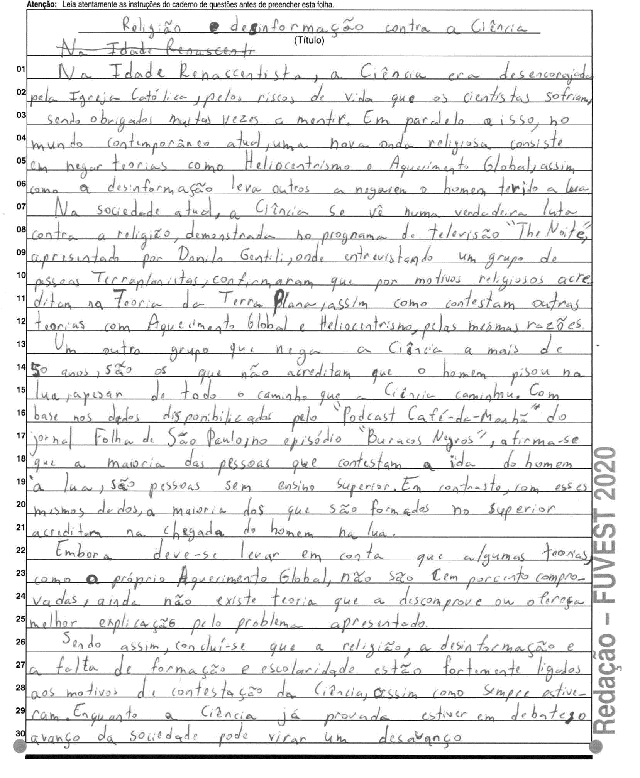 Atenção: Leia atentamente as instruções do caderno de questões antes de preencher esta folha.
Religião e desinformação contra a Ciência
(Título)
Na Idade Renascent
01 Na Idade Renascentista, a Ciência era desencorajada
02 pela Igreja Católica, pelos riscos de vida que os cientistas sofriam,
03 sendo obrigados muitas vezes a mentir. Em paralelo a isso, no
04 mundo contemporâneo atual, uma nova onda religiosa consiste
05 em negar teorias como Heliocentrismo e Aquecimento Global, assim
06 como a desinformação leva outros a negarem o homem ter ido a lua
07 Na sociedade atual, a Ciência se vê numa verdadeira luta
08 contra a religião, demonstrada no programa de televisão "The Noite",
09 apresentado por Danilo Gentili, onde entrevistando um grupo de
10 pessoas Terraplanistas, confirmaram que por motivos religiosos acre-
11 ditam na Teoria da Terra Plana, assim como contestam outras
12 teorias com Aquecimento Global e Heliocentrismo, pelas mesmas razões.
13 Um outro grupo que nega a Ciência a mais de
14 50 anos, são os que não acreditam que o homem pisou na
15 lua, apesar de todo o caminho que a Ciência caminhou. Com
16 base nos dados disponibilizados pelo "Podcast Café-da-Manhã" do
17 jornal Folha de São Paulo, no episódio "Buracos Negros", afirma-se
18 que a maioria das pessoas que contestam a ida do homem
19 à lua, são pessoas sem ensino superior. Em contraste, com esses
20 mesmos dados, a maioria dos que são formados no superior
21 acreditam na chegada do homem na lua.
22 Embora deve-se levar em conta que algumas teorias,
23 como o próprio Aquecimento Global, não são cem porcento compro-
24 vadas, ainda não existe teoria que a discomprove ou ofereça
25 melhor explicação pelo problema apresentado.
26 Sendo assim, conclui-se que a religião, a desinformação e
27 a falta de formação e escolaridade estão fortemente ligados
28 aos motivos de contestação da Ciência, assim como sempre estive-
29 ram. Enquanto a Ciência já provada estiver em debate, o
30 avanço da sociedade pode virar um desavanço
Redação – FUVEST 2020